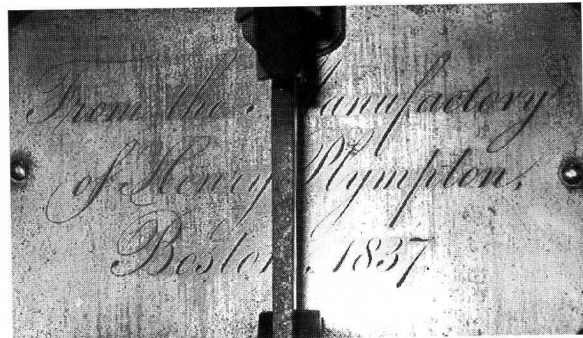 From the Manufactory
of Henry Plympton,
Boston, 1837.